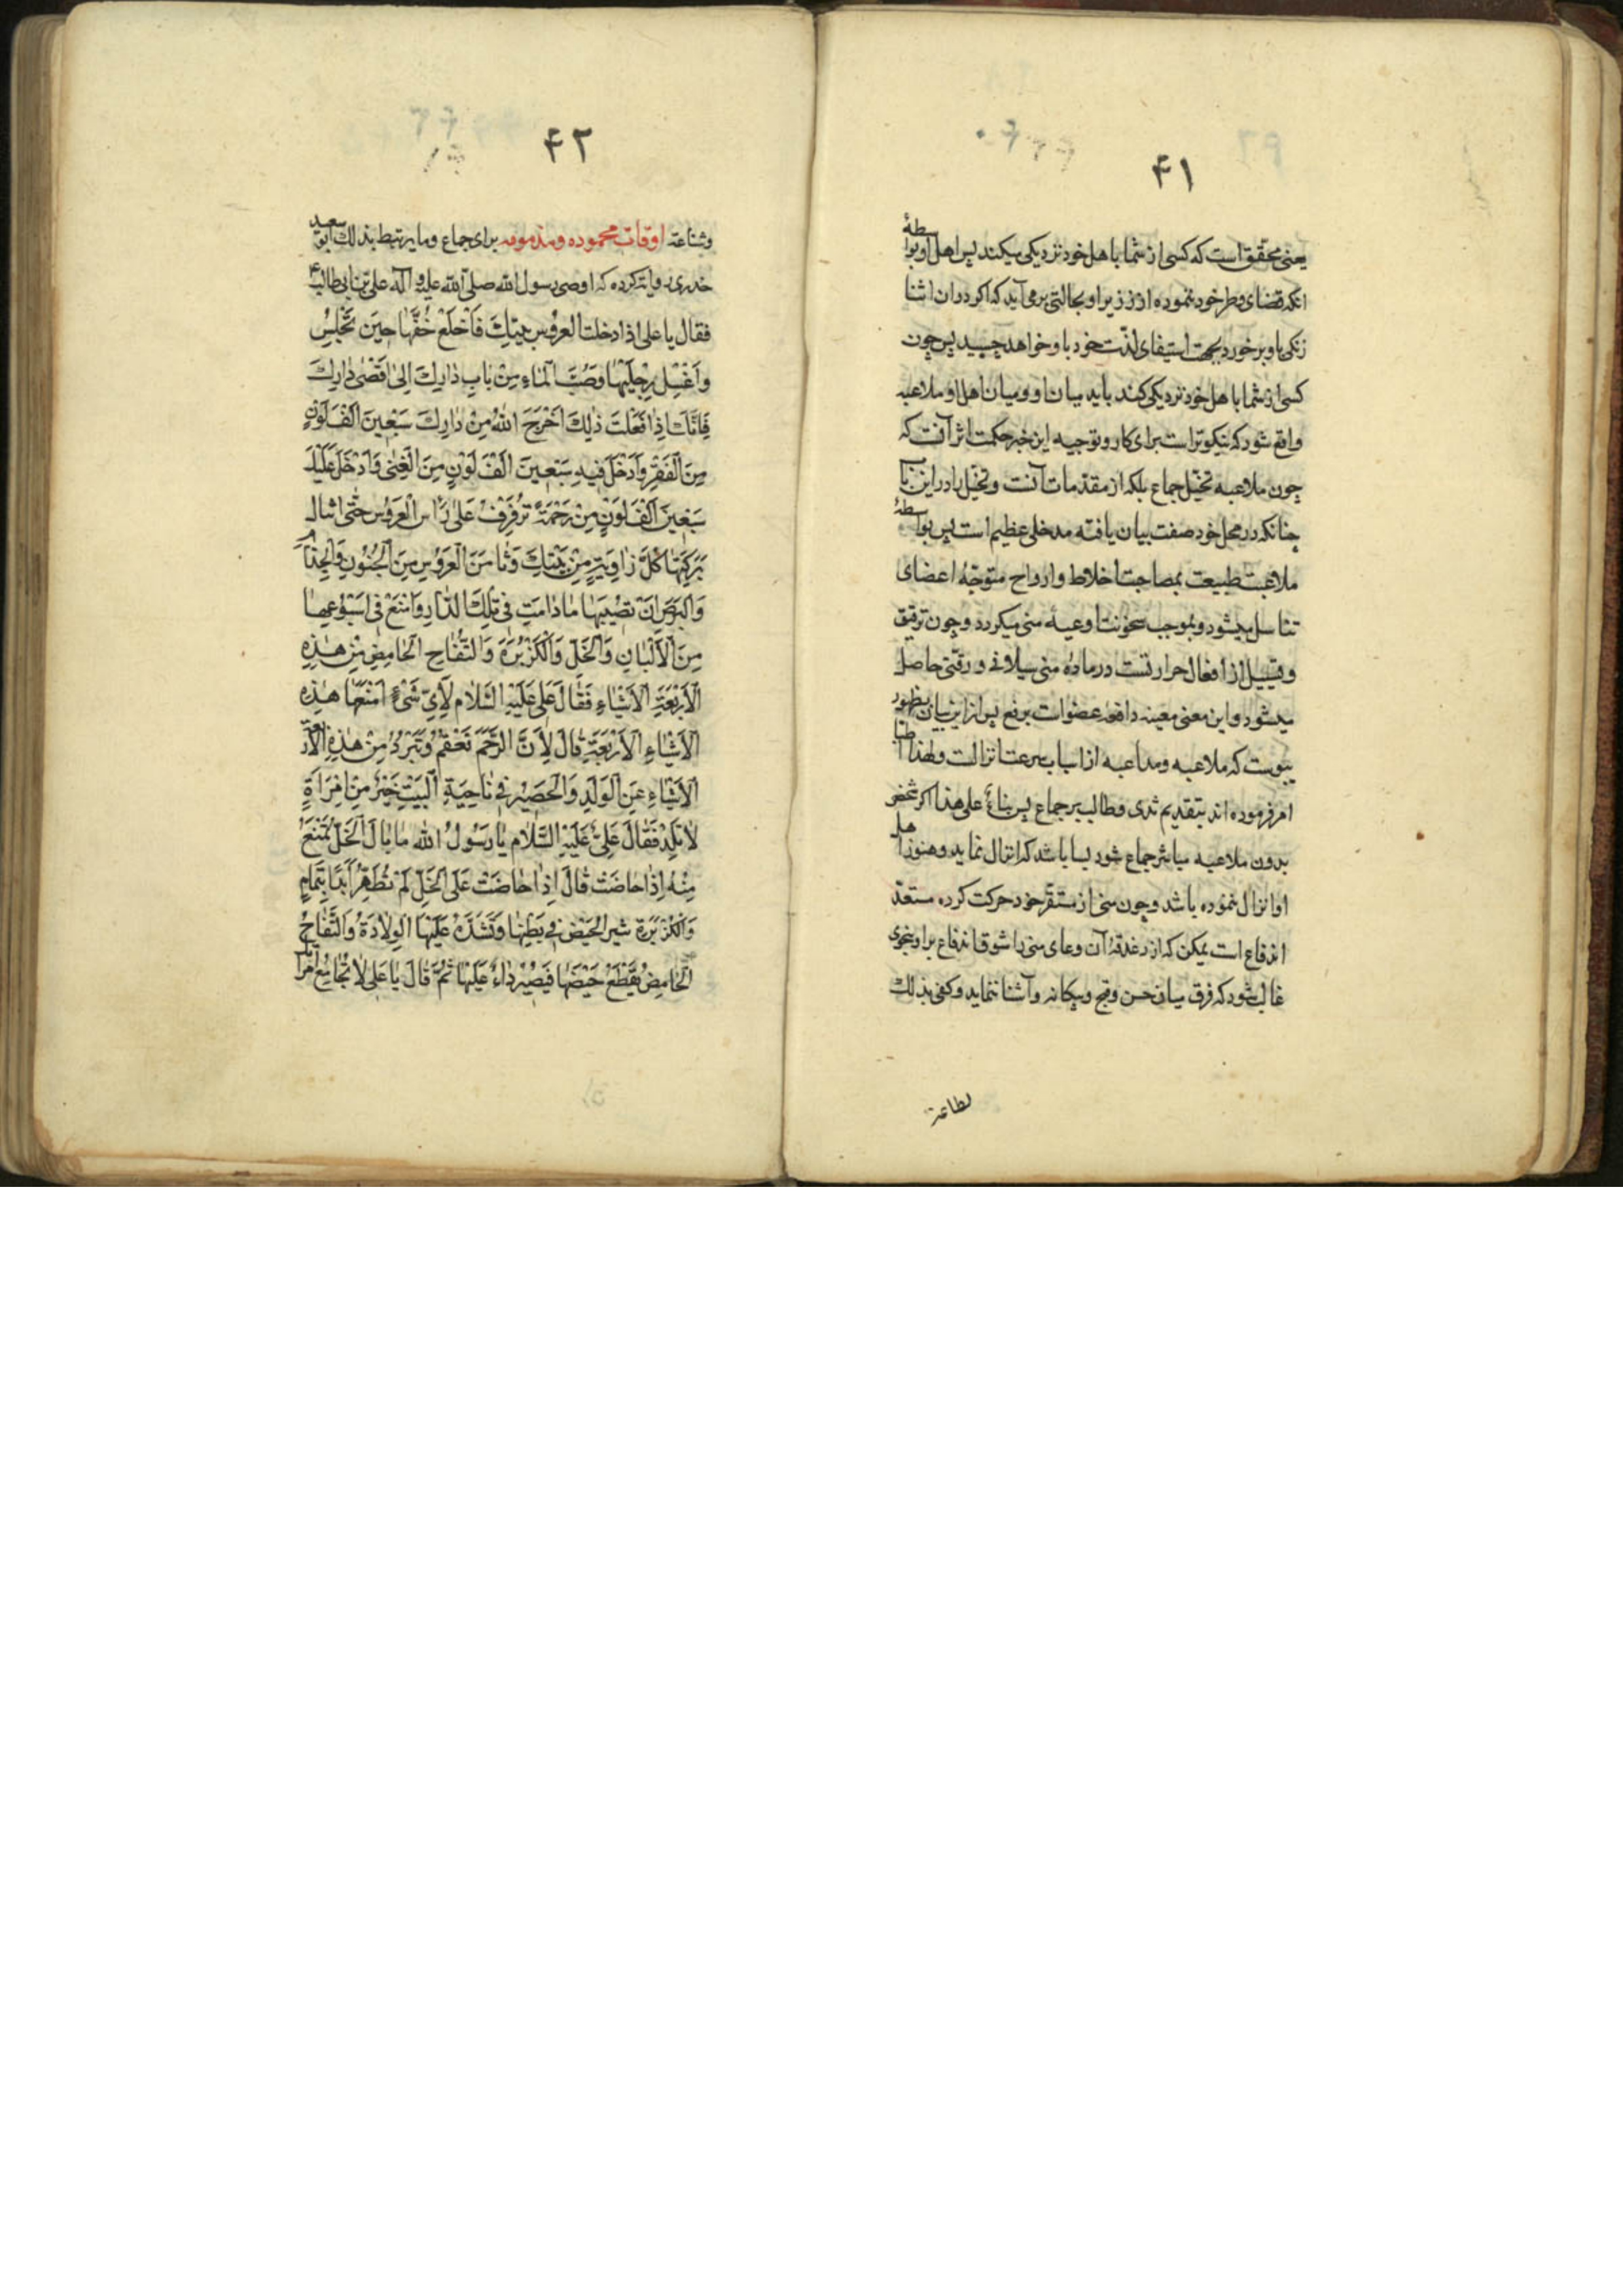 ۴۱
یعنی محقق است که کسی از شما با اهل خود نزدیکی میکند پس اهل او بواسطهٔ
انکه قضای وطر خود ننموده از زیر او بحالتی برمی آید که اکر در ان اثنا
زنکی باو برخورد بجهت استیفای لذت خود باو خواهد چسپید پس چون
کسی از شما با اهل خود نزدیکی کند باید میان او و میان اهل او ملاعبه
واقع شود که نیکوتر است برای کار و توجیه این خبر حکمت اثر آنست که
چون ملاعبه تخیل جماع بلکه از مقدمات آنست و تخیل را در این باب
چنانکه در محل خود صفت بیان یافته مدخلی عظیم است پس بواسطهٔ
ملاعبت طبیعت بمصاحبت اخلاط و ارواح متوجه اعضای
تناسل میشود و بموجب سخونت اوعیهٔ منی میکردد و چون ترقیق
و تسییل از افعال حرارتست در مادهٔ منی سیلانی و رقتی حاصل
میشود و این معنی معینه دافعه عضو است بر دفع پس از این بیان بظهور
پیوست که ملاعبه و مداعبه از اسباب سرعت انزالست و لهذا اطبا
امر فرموده اند بتقدیم ثدی و طالب بر جماع پس بناءً علی هذا اکر شخص
بدون ملاعبه مباشر جماع شود بسا باشد که انزال نماید و هنوز اهل
او انزال ننموده باشد و چون منی از مستقر خود حرکت کرده مستعد
اندفاع است یمکن که از دغدقهٔ آن وعای منی را شوق اندفاع بر او بنحوی
غالب شود که فرق میان حسن و قبح و بیکانه و آشنا ننماید و کفی بذلک
۴۲
وشناعة اوقات محموده ومذمومه برای جماع وما یرتبط بذلک ابو سعید
خدری روایت کرده که اوصی رسول الله صلی الله علیه و آله علی بن ابی طالب ع
فقال یا علی اذا دخلت العروس بیتک فَاَخلَعْ خُفَّهَا حِینَ تَجْلِسُ
وَاغْسِلْ رِجْلَیْهَا وَصُبَّ الْمَاءِ مِنْ بابِ دارِكَ اِلیٰ اَقْصیٰ دارِكَ
فَاِنَّكَ اِذا فَعَلْتَ ذٰلِكَ اَخْرَجَ اللهُ مِنْ دارِكَ سَبْعِینَ اَلْفَ لَوْنٍ
مِنَ الْفَقْرِ وَاَدْخَلَ فِیهِ سَبْعِینَ اَلْفَ لَوْنٍ مِنَ الْغِنیٰ وَاَدْخَلَ عَلَیْكَ
سَبْعِینَ اَلْفَ لَوْنٍ مِنْ رَحْمَةٍ تُرَفْرِفُ عَلیٰ رَأْسِ الْعَرُوسِ حَتّٰی تنال
بَرَكَتُهَا كُلَّ زاوِیَةٍ مِنْ بَیْتِكَ وَتَأْمَنَ الْعَرُوسُ مِنَ الْجُنُونِ وَالْجُذامِ
وَالْبَرَصِ اَنْ تُصِیبَهَا مادامَتْ فِی تِلْكَ الدّارِ وَامْنَعْ فِی اُسْبُوعِهَا
مِنَ الْاَلْبَانِ وَالْخَلِّ وَالْكُزْبُرَةِ وَالتُّفَّاحِ الْحَامِضِ مِنْ هٰذِهِ
الْاَرْبَعَةِ الْاَشْیَاءِ فَقَالَ عَلِیٌّ عَلَیْهِ السَّلَامُ لِاَیِّ شَیْءٍ اَمْنَعُهَا هٰذِهِ
الْاَشْیَاءِ الْاَرْبَعَةِ قَالَ لِاَنَّ الرَّحِمَ تَعْقُمُ وَتَبْرُدُ مِنْ هٰذِهِ الْاَرْبَعَةِ
الْاَشْیَاءِ عَنِ الْوَلَدِ وَالْحَصِیرُ فِی نَاحِیَةِ الْبَیْتِ خَیْرٌ مِنْ اِمْرَاَةٍ
لَا تَلِدُ فَقَالَ عَلِیٌّ عَلَیْهِ السَّلَامُ یَا رَسُولُ اللهِ مَا بَالُ الْخَلِّ تُمْنَعُ
مِنْهُ اِذَا حَاضَتْ قَالَ اِذَا حَاضَتْ عَلَی الْخَلِّ لَمْ تُطْهَرْ اَبَدًا بِتَمَامٍ
وَالْكُزْبُرَةِ تثیر الْحَیْضَ فِی بَطْنِهَا وَتُشَدِّدُ عَلَیْهَا الْوِلَادَةُ وَالتُّفَّاحُ
الْحَامِضُ یَقْطَعُ حَیْضَهَا فَیَصِیرُ دَاءً عَلَیْهَا ثُمَّ قَالَ یَا عَلِی لَا تُجَامِعْ اِمْرَأ